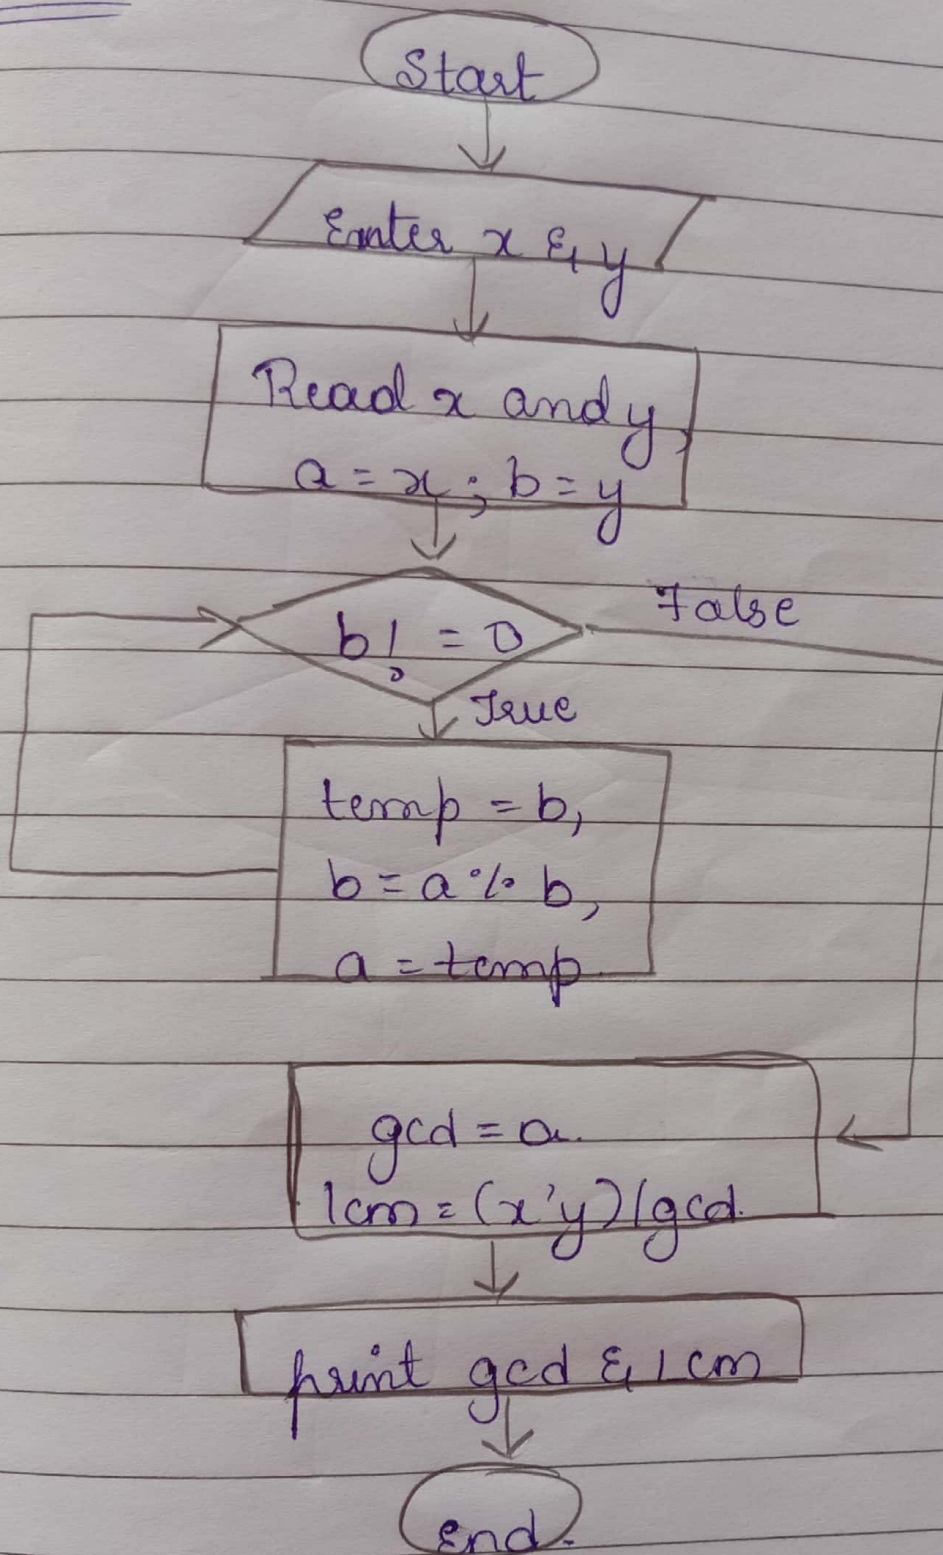 Start
Enter x & y
Read x and y,
a = x ; b = y
b! = 0
False
True
temp = b,
b = a % b,
a = temp
gcd = a.
lcm = (x*y)/gcd.
print gcd & lcm
End.